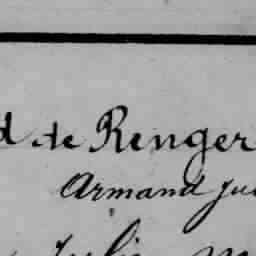 d de Renger
Armand Ju
Julie